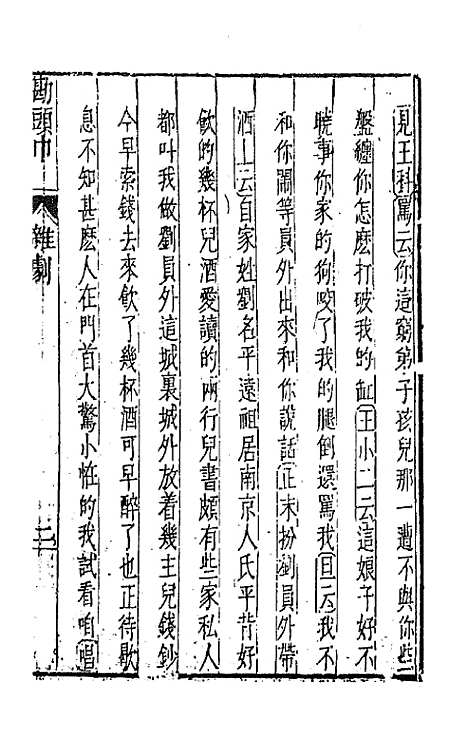 見王科罵云你這窮弟子孩兒那一遭不與你些
盤纏你怎麽打破我的缸王小二云這娘子好不
曉事你家的狗咬了我的腿倒還罵我旦云我不
和你鬧等員外出來和你說話正末扮劉員外帶
酒上云自家姓劉名平遠祖居南京人氏平昔好
飲的幾杯兒酒愛讀的兩行兒書頗有些家私人
都叫我做劉員外這城裏城外放着幾主兒錢鈔
今早索錢去來飲了幾杯酒可早醉了也正待歇
息不知甚麽人在門首大驚小怪的我試看咱唱
勘頭巾 雜劇 二